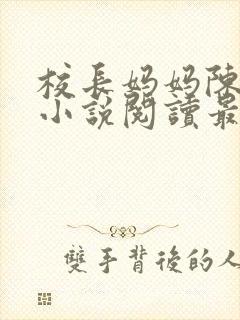 校長妈妈陳
小說閱讀最
雙手背後的人